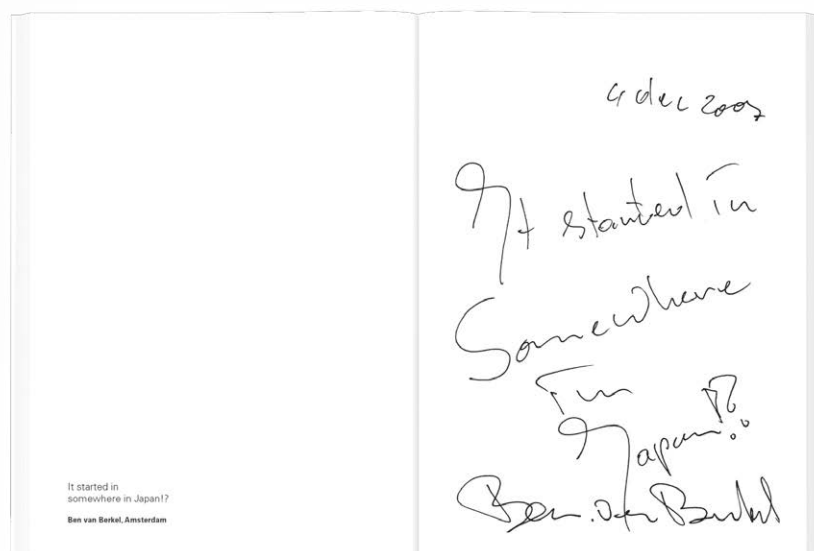 It started in
somewhere in Japan!?
Ben van Berkel, Amsterdam
4 dec 2007
It started in
Somewhere
in
Japan!?
Ben van Berkel